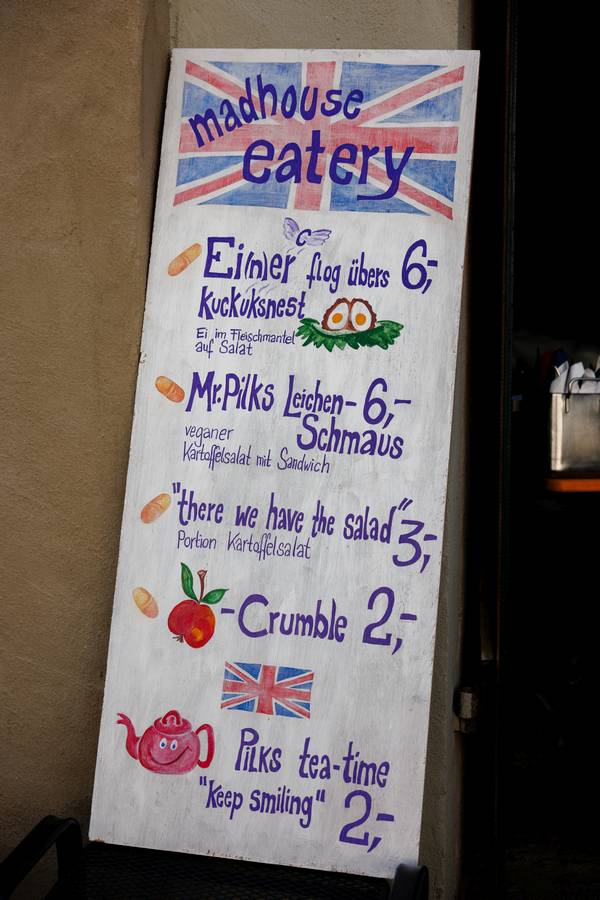 madhouse
eatery
Ei(n)er flog übers 6,-
Kuckuksnest
Ei im Fleischmantel
auf Salat
Mr. Pilks Leichen- 6,-
Schmaus
veganer
Kartoffelsalat mit Sandwich
"there we have the salad" 3,-
Portion Kartoffelsalat
-Crumble 2,-
Pilks tea-time
"Keep smiling" 2,-